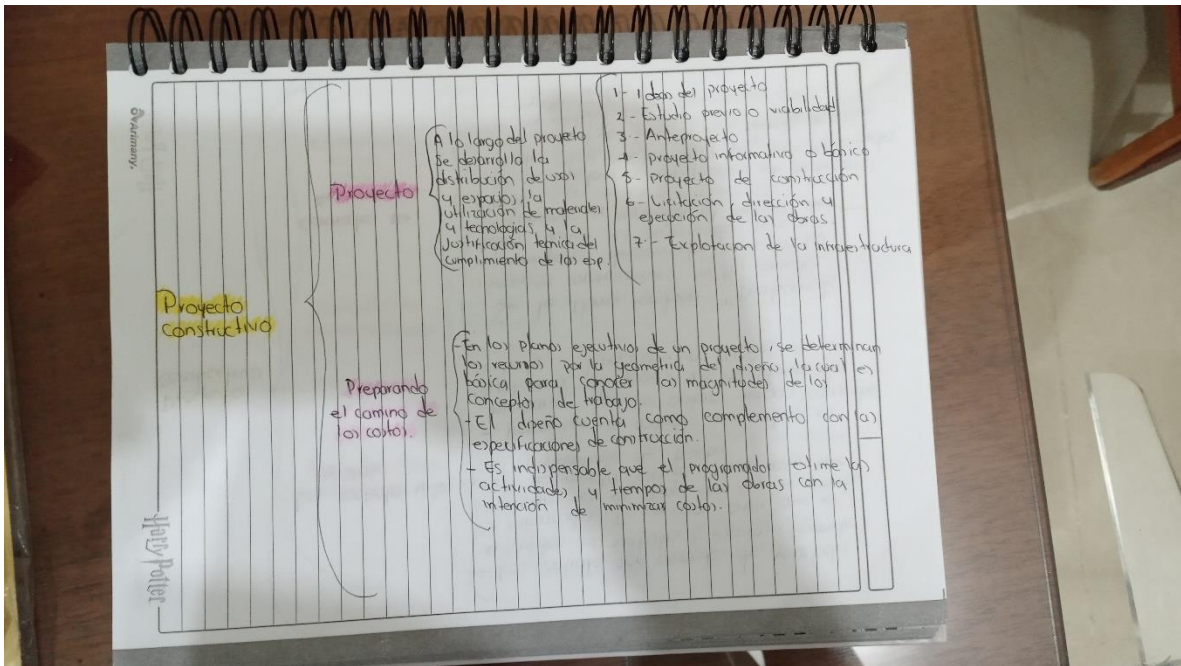 Ovarimany.
Proyecto
constructivo
Proyecto
A lo largo del proyecto
se desarrolla la
distribución de usos
y espacios, la
utilización de materiales
y tecnologias, y la
Justificación tecnica del
cumplimiento de las esp.
1- Ideas del proyecto
2- Estudio previo o viabilidad
3- Anteproyecto
4- proyecto informativo o básico
5- Proyecto de construcción
6- Licitación, dirección y
ejecución de las obras
7.- Explotacion de la infraestructura
Preparando
el camino de
los costos.
-En los planos ejecutivos de un proyecto, se determinan
los recursos por la geometria del diseño, la cual es
básica para conocer las magnitudes de los
conceptos de trabajo.
-El diseño cuenta como complemento con las
especificaciones de construcción.
- Es indispensable que el programador estime las
actividades y tiempos de las obras con la
intención de minimizar costos.
Harry Potter